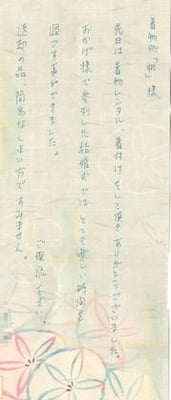 着物処「根」様
先日は着物レンタル、着付けをして頂きありがとうございました。
おかげ様で参列した結婚式では、とても楽しい時間を
過ごす事ができました。
ご確認下さい。
返却の品、簡易なしまい方ですみません。